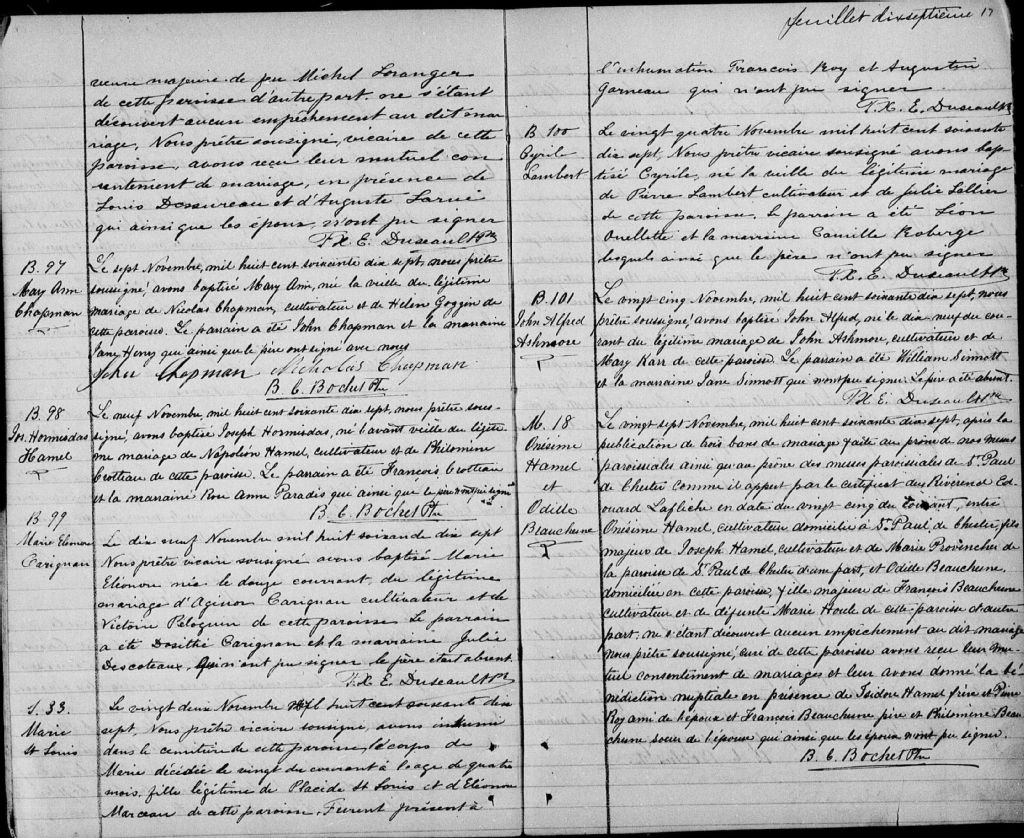 feuillet dixseptième 17
veuve majeure de feu Michel Loranger
de cette paroisse d'autre part. ne s'étant
découvert aucun empêchement au dit ma
riage, Nous prêtre sousigné, vicaire de cette
paroisse, avons reçu leur mutuel con
sentement de mariage, en présence de
Louis Desureau et d'Auguste Larue
qui ainsi que les époux, n'ont pu signer
F. X. E. Duseault Ptre
B. 97
Mary Ann
Chapman
Le sept Novembre, mil huit cent soixante dix sept, nous prêtre
sousigné, avons baptisé Mary Ann, née la veille du légitime
mariage de Nicolas Chapman, cultivateur et de Helen Goggin de
cette paroisse. Le parain a été John Chapman et la maraine
Jane Henry qui ainsi que le père ont signé avec nous
John Chapman Nicholas Chapman
B. C. Bochet Ptre
B. 98
Jos. Hormisdas
Hamel
Le neuf Novembre, mil huit cent soixante dix sept, nous prêtre sous-
signé, avons baptisé Joseph Hormisdas, né l'avant veille du légiti
me mariage de Napoléon Hamel, cultivateur et de Philomène
Crotteau de cette paroisse. Le parain a été François Crotteau
et la maraine Rose Anne Paradis qui ainsi que le père n'ont pu signé
B. C. Bochet Ptre
B. 99
Marie Eléonore
Carignan
Le dix neuf Novembre mil huit soixante dix sept
Nous prêtre vicaire sousigné avons baptisé Marie
Eléonore née le douze courrant, du légitime
mariage d'Aginor Carignan cultivateur et de
Victoire Peloquin de cette paroisse Le parrain
a été Dosithé Carignan et la marraine Julie
Descoteaux, Qui n'ont pu signer le père étant absent.
F. X. E. Duseault Ptre
S. 33
Marie
St Louis
Le vingt deux Novembre mil huit cent soixante dix
sept, Nous prêtre vicaire sousigné, avons inhumé
dans le cimetière de cette paroisse, le corps de
Marie décédée le vingt du courant à l'age de quatre
mois, fille légitime de Placide St Louis et d'Eléonore
Marceau de cette paroisse. Furent présent à
l'inhumation François Roy et Augustin
Garneau qui n'ont pu signer
F. X. E. Duseault Ptr
B 100
Cyrile
Lambert
Le vingt quatre Novembre mil huit cent soixante
dix sept, Nous prêtre vicaire sousigné avons bap
tisé Cyrile, né la veille du légitime mariage
de Pierre Lambert cultivateur et de Julie Lallier
de cette paroisse, Le parrain a été Léon
Ouellette et la marraine Camille Roberge
lesquels ainsi que le père n'ont pu signer
F. X. E. Duseault Ptr
B. 101
John Alfred
Ashmore
Le vingt cinq Novembre, mil huit cent soixante dix sept, nous
prêtre soussigné, avons baptisé John Alfred, né le dix neuf du cou-
rant du légitime mariage de John Ashmore, cultivateur et de
Mary Karr de cette paroisse. Le parrain a été William Sinnott
et la marraine Jane Sinnott qui n'ont pu signer. Le père a été absent.
F. X. E. Duseault Ptre
M. 18
Onésime
Hamel
et
Odille
Beauchene
Le vingt sept Novembre, mil huit cent soixante dix sept, après la
publication de trois bans de mariage faite au prône de nos messes
paroissiales ainsi qu'au prône des messes paroissiales de St Paul
de Chester comme il appert par le certificat du Révérend Ed-
ouard Laflèche en date du vingt cinq du courant, entre
Onésime Hamel, cultivateur domicilié à St. Paul de Chester, fils
majeur de Joseph Hamel, cultivateur et de Marie Provencher de
la paroisse de St Paul de Chester d'une part, et Odille Beauchene
domiciliée en cette paroisse, fille majeure de François Beauchene
cultivateur et de défunte Marie Houle de cette paroisse d'autre
part, ne s'étant découvert aucun empêchement au dit mariage
nous prêtre soussigné, curé de cette paroisse avons reçu leur mu-
tuel consentement de mariages et leur avons donné la bé-
nédiction nuptiale en présence de Isidore Hamel frère et Pierre
Roy ami de l'epoux et François Beauchene père et Philomène Beau
chene soeur de l'épouse qui ainsi que les époux n'ont pu signer.
B. C. Bochet Ptre